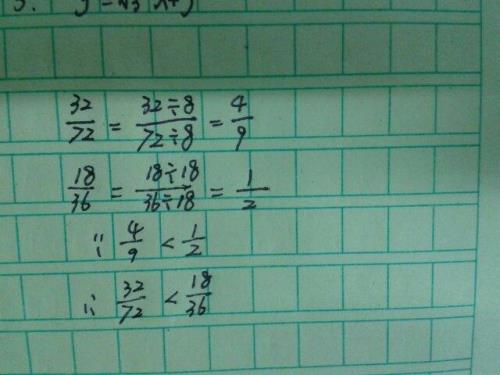 3.
32/72 = 32÷8/72÷8 = 4/9
18/36 = 18÷18/36÷18 = 1/2
∵ 4/9 < 1/2
∴ 32/72 < 18/36